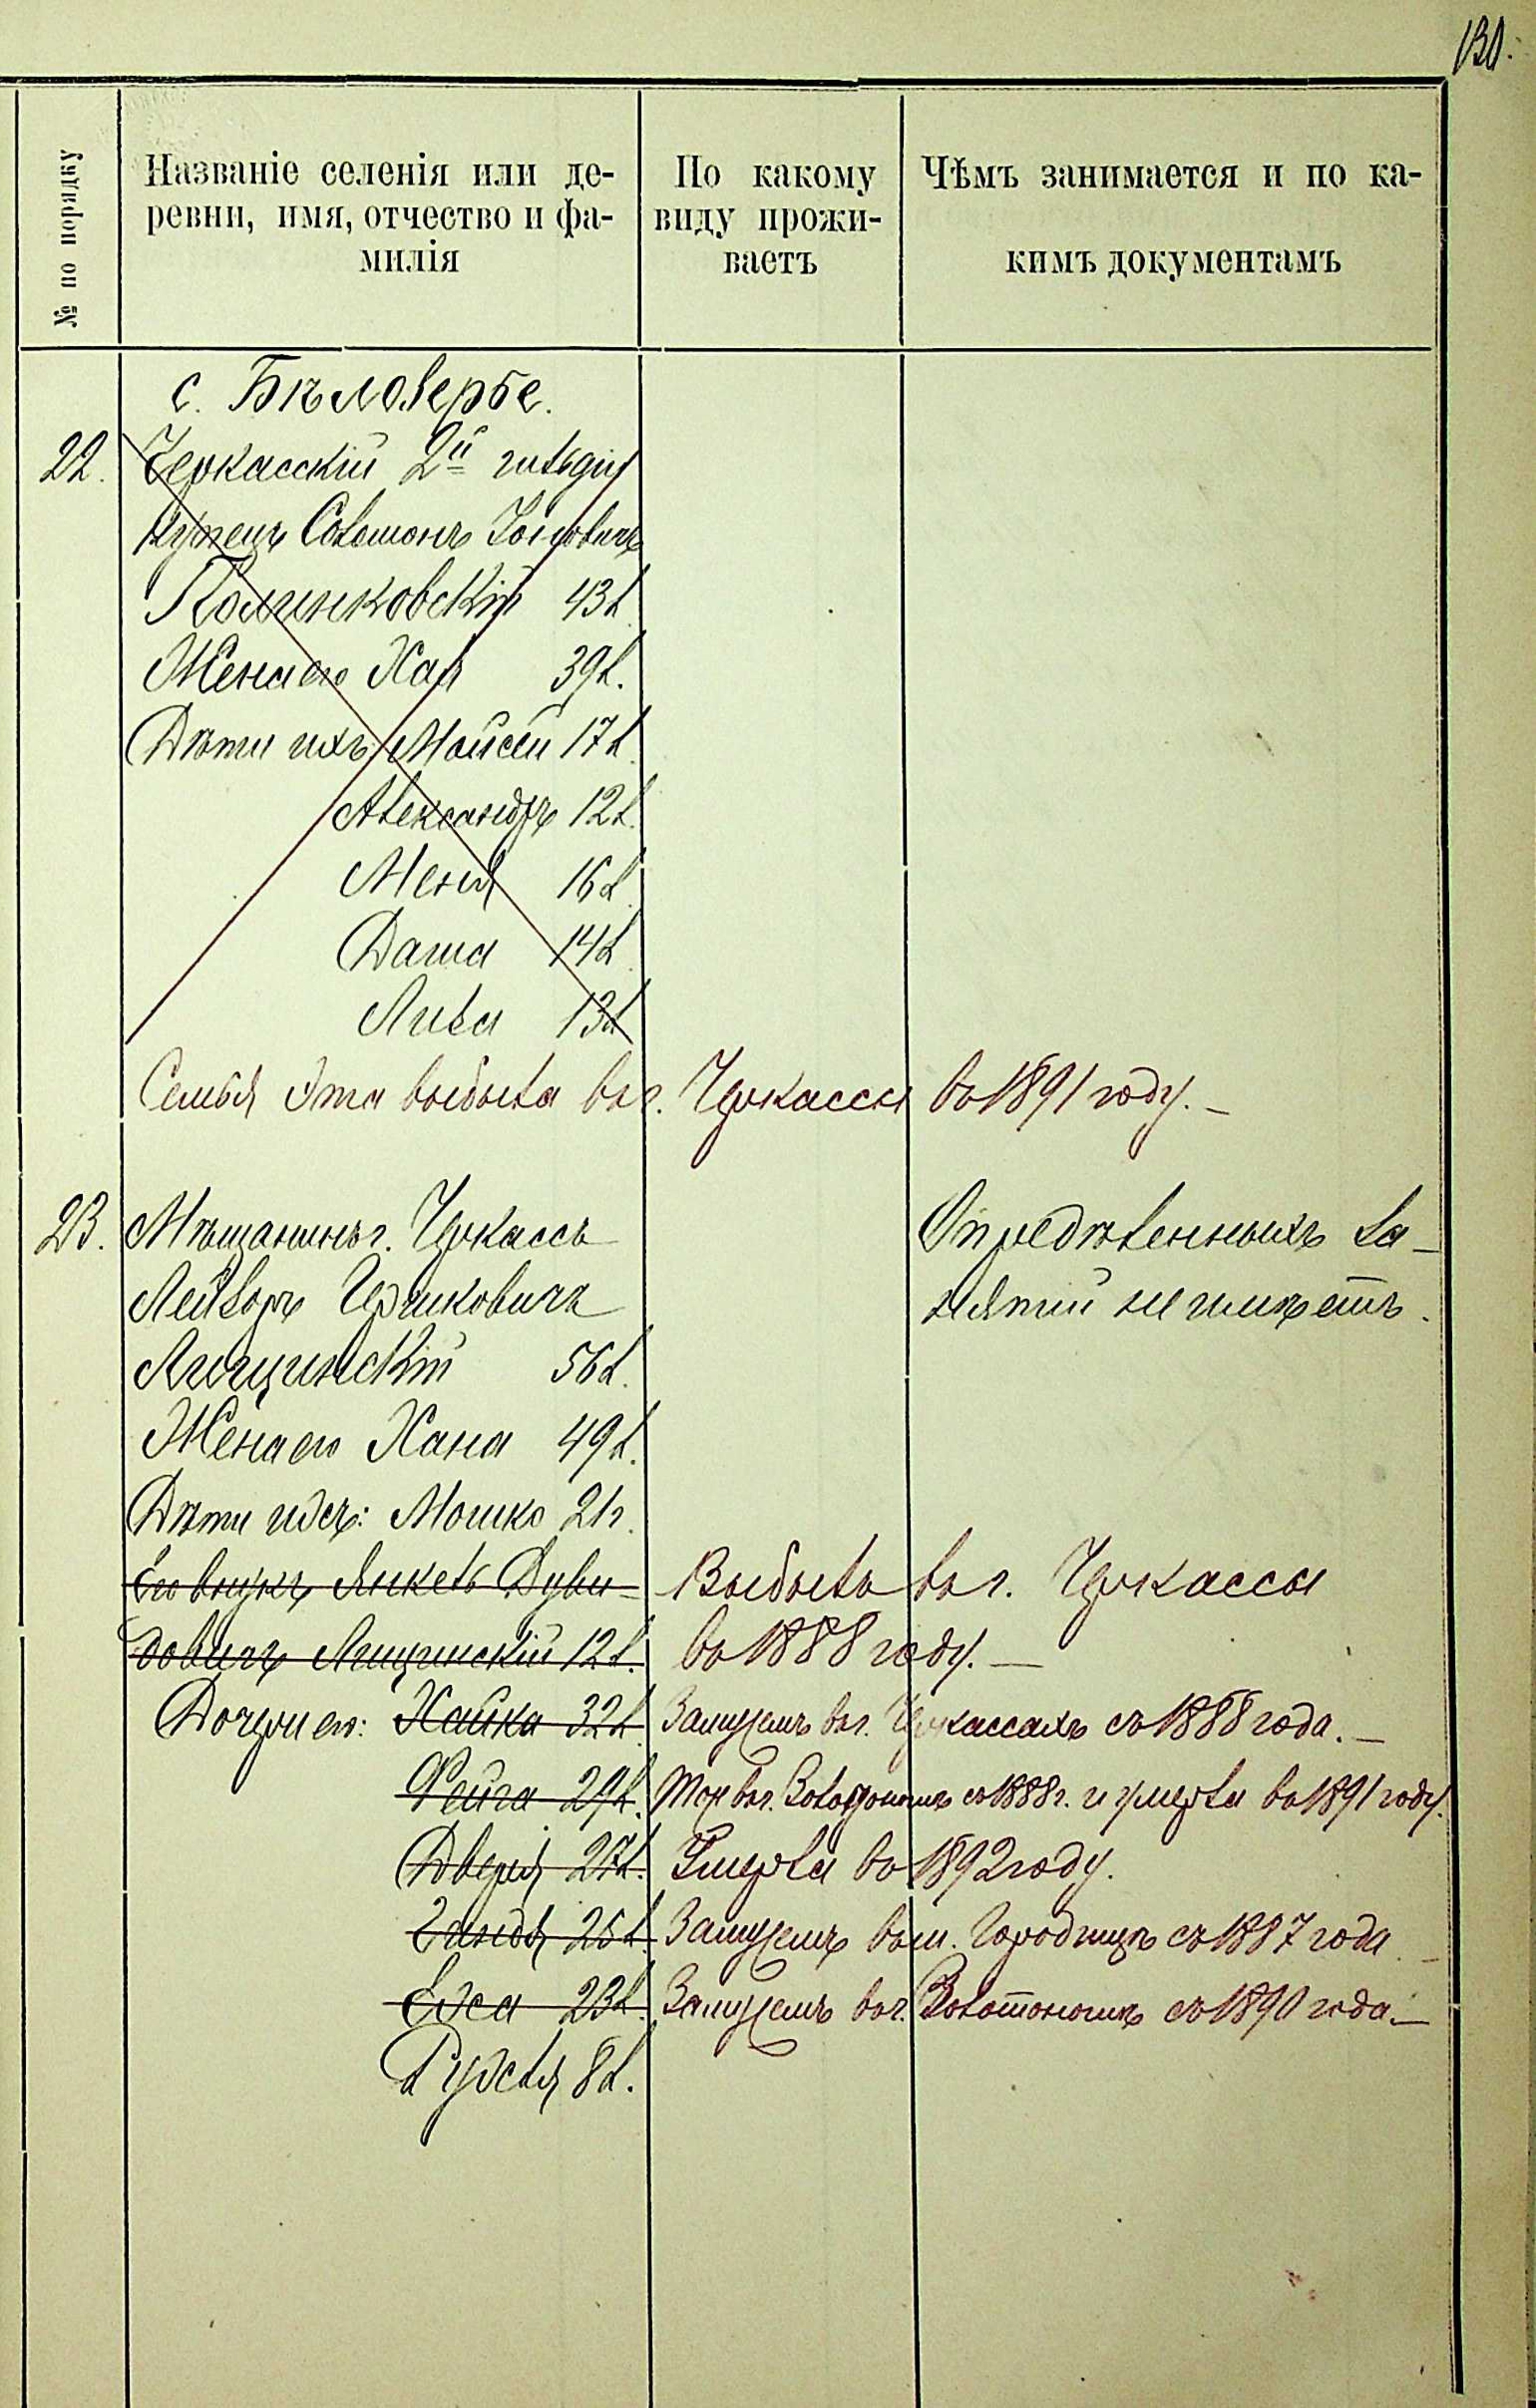 130.
№ по порядку
Названіе селенія или де-
ревни, имя, отчество и фа-
милія
По какому
виду прожи-
ваетъ
Чѣмъ занимается и по ка-
кимъ документамъ
с. Бѣловерье.
22. Черкасскій 2й гильдіи
купецъ Соломонъ
43 л.
Жена его Хая 39 л.
Дѣти ихъ: Мойсей 17 л.
Александръ 12 л.
Меня 16 л.
Даша 14 л.
Лиза 13 л.
Семья эта выбыла въ г. Черкассы въ 1891 году. –
23. Мѣщанинъ г. Черкассъ
Лейзоръ Ицковичъ
Лищинскій 56 л.
Жена его Хана 49 л.
Дѣти ихъ: Мошко 21 г.
Его внукъ Янкель Дуви-
довичъ Лищинскій 12 л.
Выбылъ въ г. Черкассы
въ 1888 году. —
Опредѣленныхъ за-
нятій не имѣетъ.
Дочери его: Хайка 32 л. Замужемъ въ г. Черкассахъ съ 1888 года. —
Фейга 29 л. Тож въ г. Золотоношѣ съ 1888 г. и умерла въ 1891 году.
Двейра 27 л. Умерла въ 1892 году.
25 л. Замужемъ въ м. Городищѣ съ 1887 года. –
23 л. Замужемъ въ г. Золотоношѣ съ 1890 года. —
Рухля 8 л.